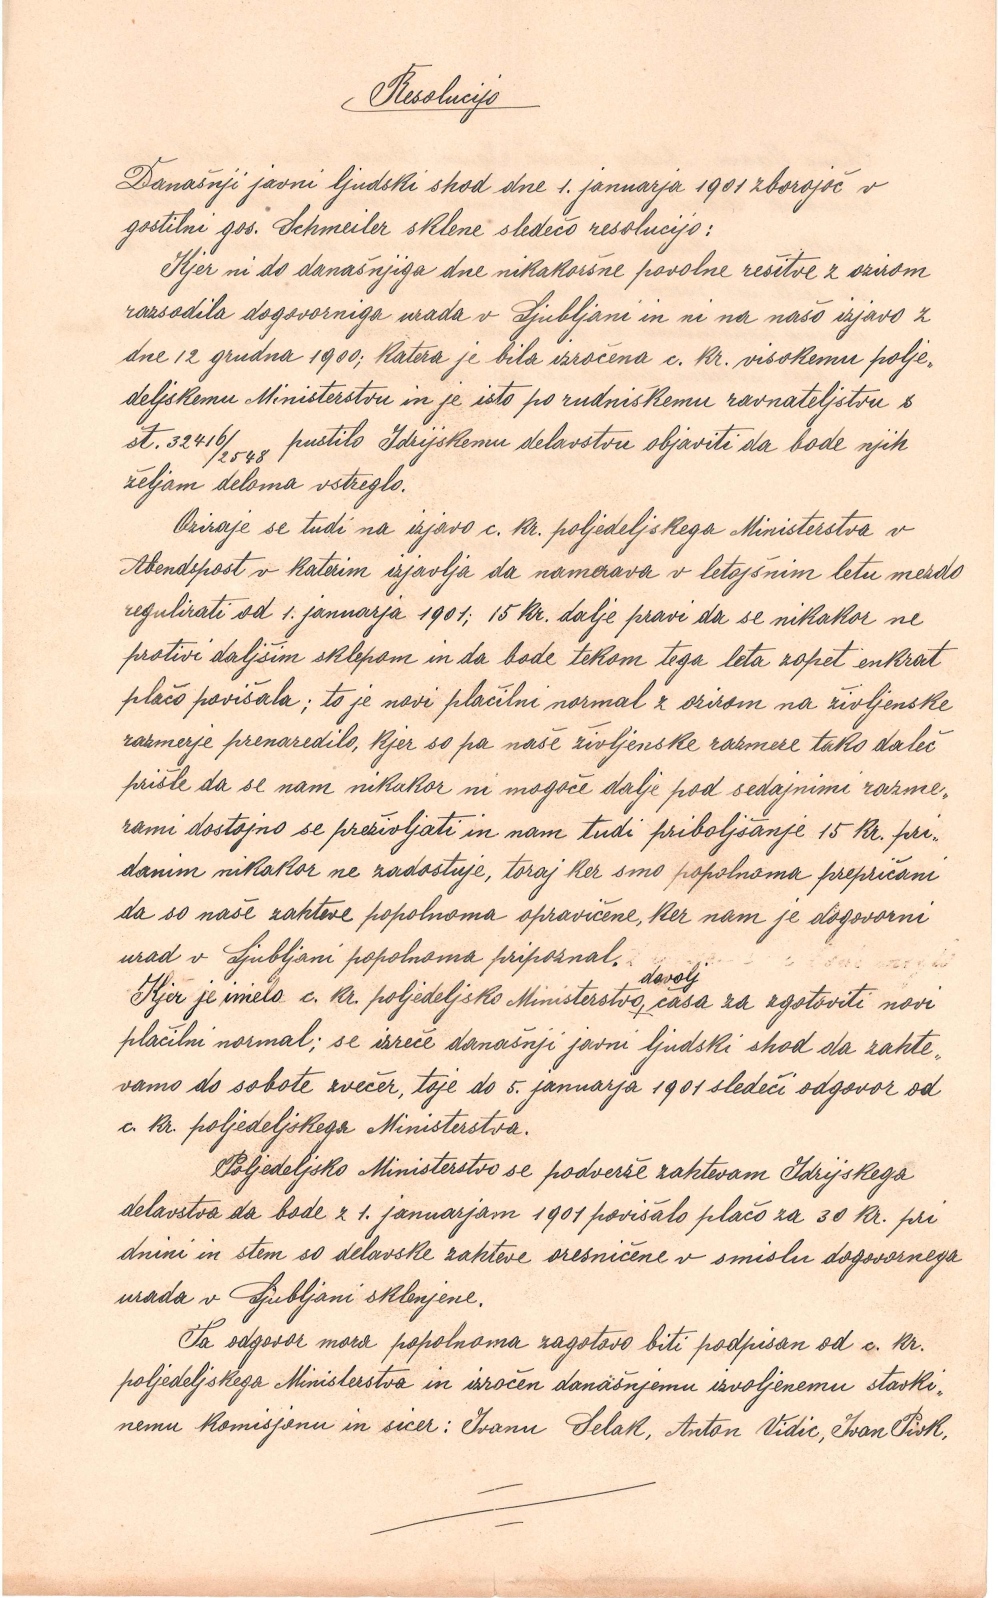 Resolucijo
Današnji javni ljudski shod dne 1. januarja 1901 zborojoč v
gostilni gos. Schmeiler sklene sledečo resolucijo:
Kjer ni do današnjiga dne nikakoršne povolne rešitve z ozirom
razsodila dogovorniga urada v Ljubljani in ni na našo izjavo z
dne 12 grudna 1900; katera je bila izročena c. kr. visokemu polje„
deljskemu Ministerstvu in je isto po rudniškemu ravnateljstvu s
št. 32416/2548 pustilo Idrijskemu delavstvu objaviti da bode njih
željam deloma vstreglo.
Oziraje se tudi na izjavo c. kr. poljedeljskega Ministerstva v
Abendspost v katerim izjavlja da namerava v letojšnim letu mezdo
regulirati od 1. januarja 1901; 15 kr. dalje pravi da se nikakor ne
protivi daljšim sklepom in da bode tekom tega leta zopet enkrat
plačo povišala; to je novi plačilni normal z ozirom na življenske
razmerje prenaredilo, kjer so pa naše življenske razmere tako daleč
prišle da se nam nikakor ni mogoče dalje pod sedajnimi razme„
rami dostojno se preživljati in nam tudi priboljšanje 15 kr. pri„
danim nikakor ne zadostuje, toraj ker smo popolnoma prepričani
da so naše zahteve popolnoma opravičene, ker nam je dogovorni
urad v Ljubljani popolnoma pripoznal.
Kjer je imelo c. kr. poljedeljsko Ministerstvo, dovolj časa za zgotoviti novi
plačilni normal; se izreče današnji javni ljudski shod da zahte„
vamo do sobote zvečer, toje do 5. januarja 1901 sledeči odgovor od
c. kr. poljedeljskega Ministerstva.
Poljedeljsko Ministerstvo se podverže zahtevam Idrijskega
delavstva da bode z 1. januarjam 1901 povišalo plačo za 30 kr. pri
dnini in stem so delavske zahteve oresničene v smislu dogovornega
urada v Ljubljani sklenjene.
Ta odgovor mora popolnoma zagotovo biti podpisan od c. kr.
poljedeljskega Ministerstva in izročen današnjemu izvoljenemu stavki„
nemu komisjonu in sicer: Ivanu Selak, Anton Vidic, Ivan Pivk,